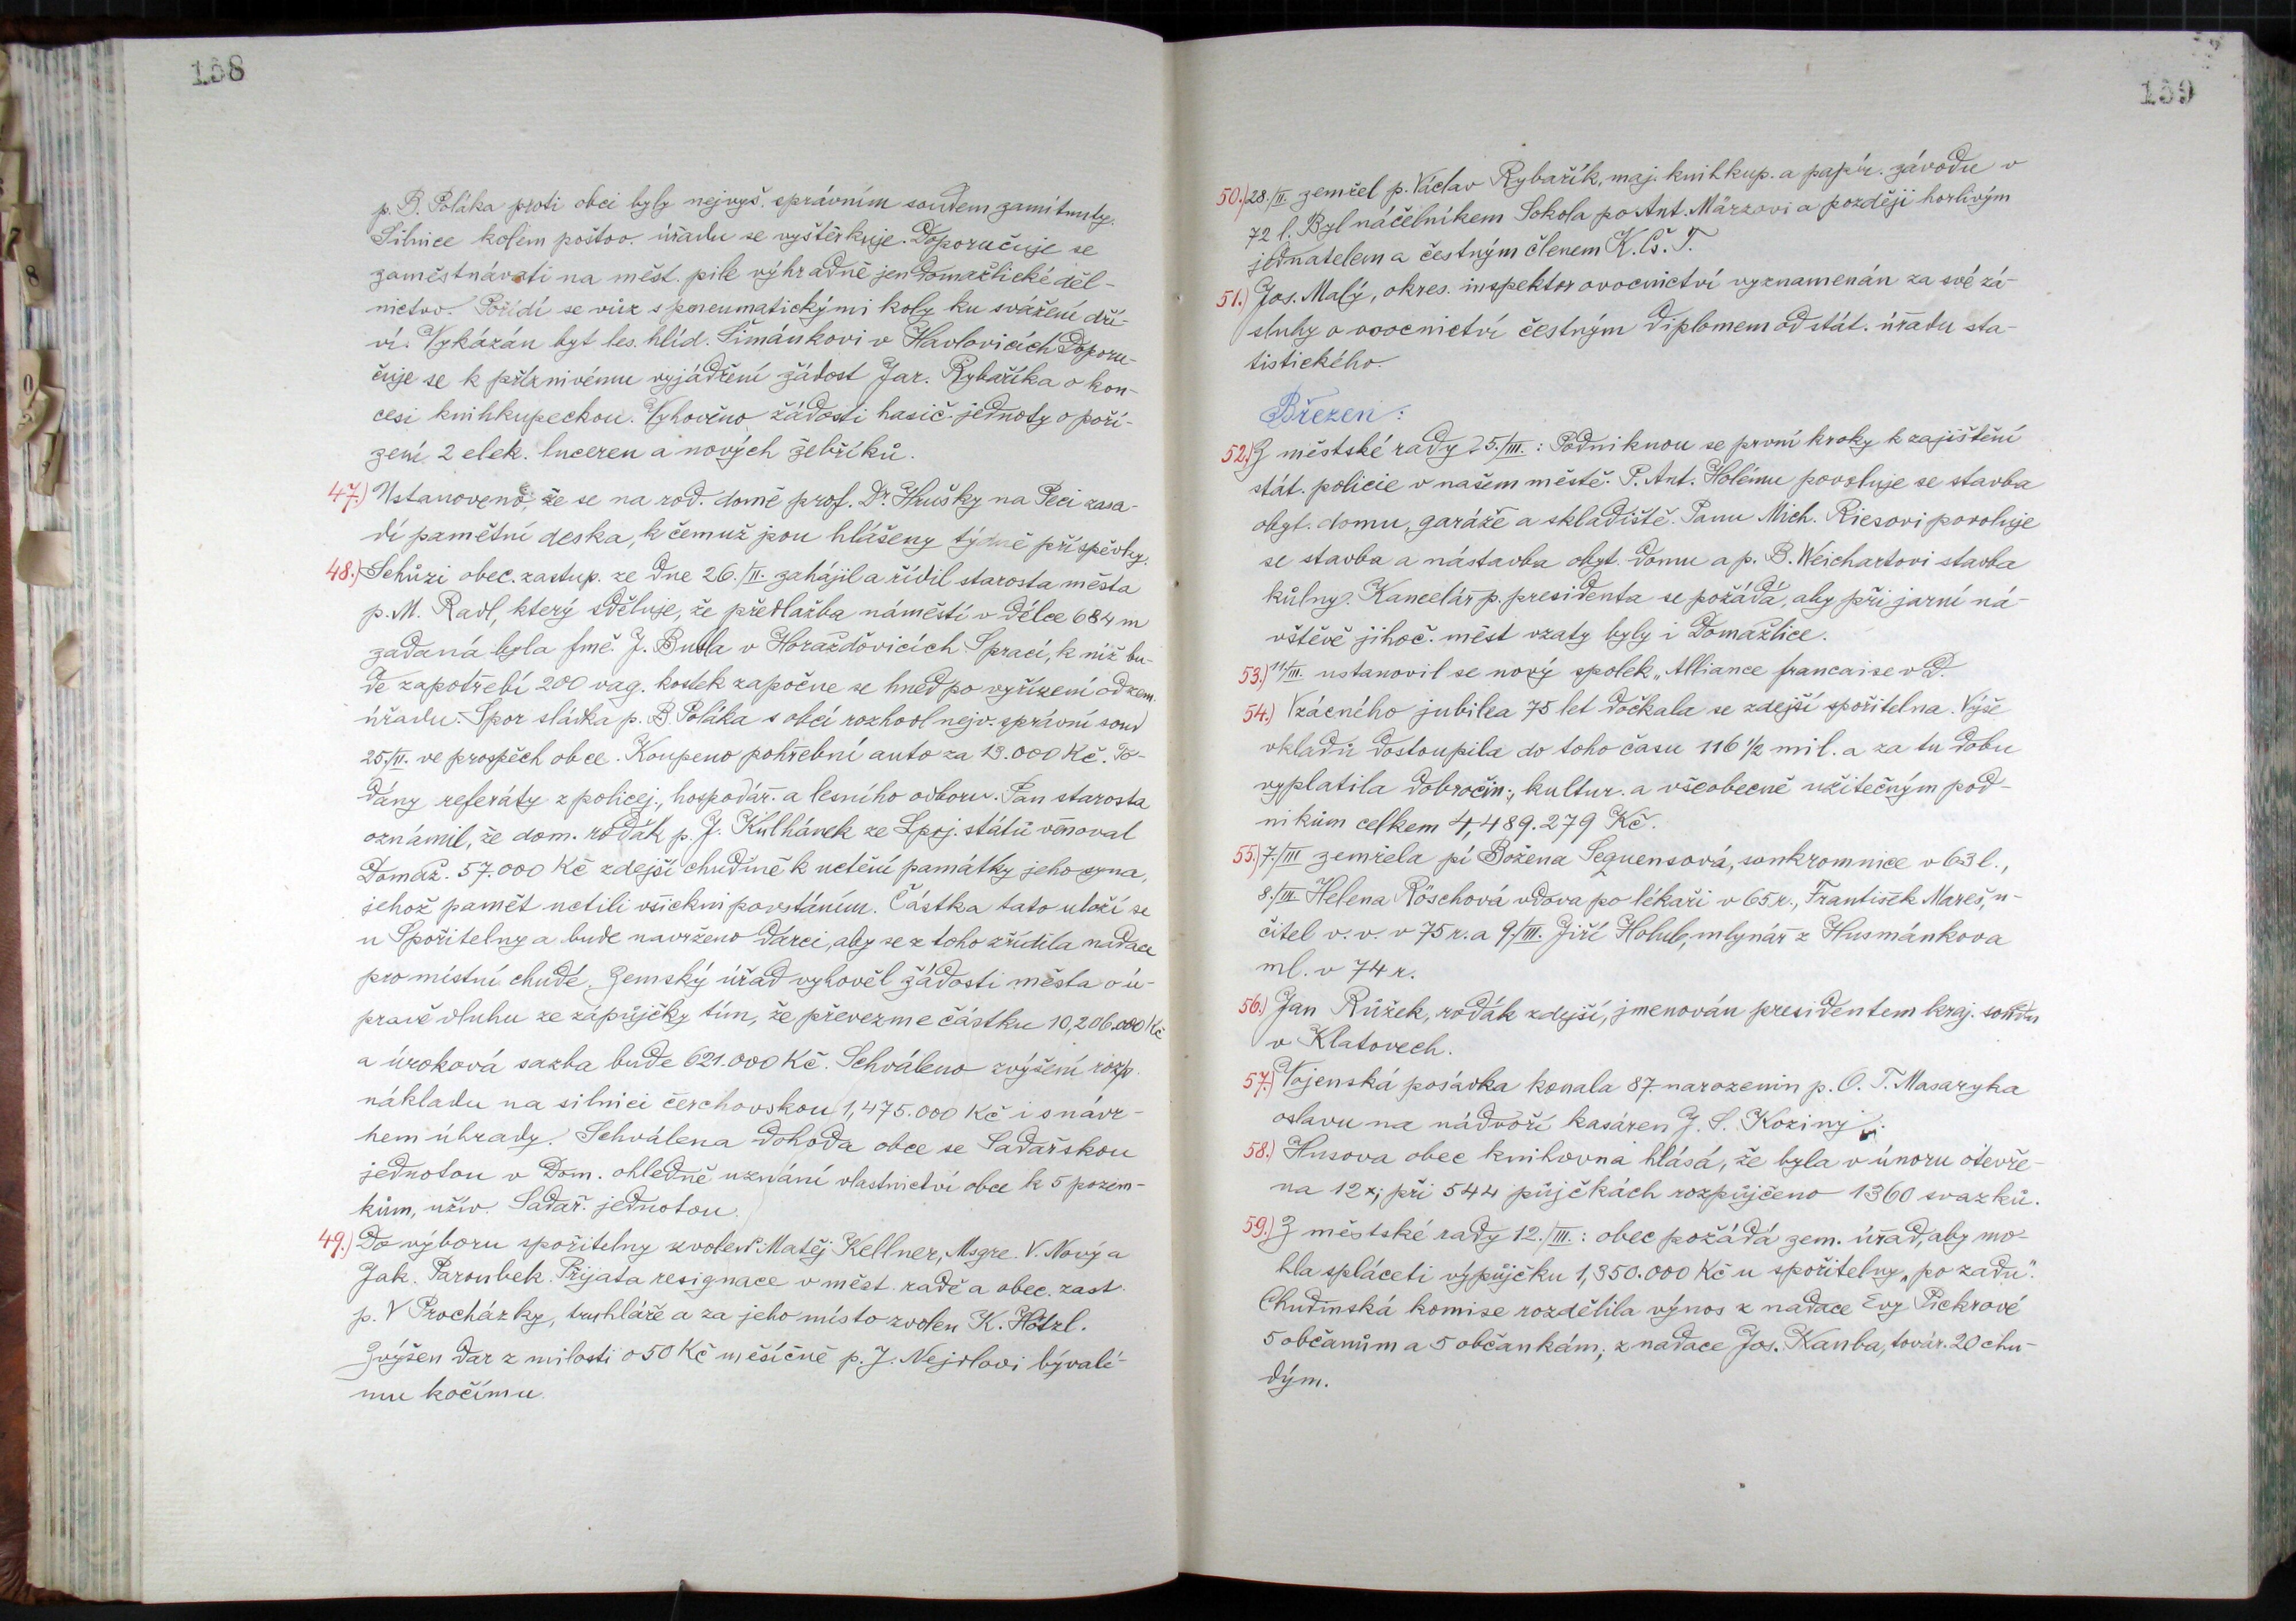 158
p. B. Poláka proti obci byly nejvyš. správním soudem zamítnuty.
Silnice kolem poštov. úřadu se vyštěrkuje. Doporučuje se
zaměstnávati na měst. pile výhradně jen domažlické děl-
nictvo. Pořídí se vůz s pneumatickými koly ku svážení dří-
ví. Vykázán byt les. hlíd. Šimánkovi v Havlovicích Doporu-
čuje se k příznivému vyjádření žádost Jar. Rybaříka o kon-
cesi knihkupeckou. Vyhověno žádosti hasič. jednoty o poří-
zení 2 elek. luceren a nových žebříků.
47.) Ustanoveno, že se na rod. domě prof. Dr. Hrušky na Peci zasa-
dí pamětní deska, k čemuž jsou hlášeny týdně příspěvky.
48.) Schůzi obec. zastup. ze dne 26./II. zahájil a řídil starosta města
p. M. Radl, který sděluje, že předlažba náměstí v délce 684 m
zadaná byla fmě. J. Busla v Horažďovicích S prací, k níž bu-
de zapotřebí 200 vag. kostek započne se hned po vyřízení od zem.
úřadu. Spor sládka p. B. Poláka s obcí rozhodl nejv. správní soud
25./II. ve prospěch obce. Koupeno pohřební auto za 13.000 Kč. Po-
dány referáty z policej., hospodář. a lesního odboru. Pan starosta
oznámil, že dom. rodák p. J. Kulhánek ze Spoj. států věnoval
Domaž. 57.000 Kč zdejší chudině k uctění památky jeho syna,
jehož paměť uctili všickni povstáním. Částka tato uloží se
u Spořitelny a bude navrženo dárci, aby se z toho zřídila nadace
pro místní chudé. Zemský úřad vyhověl žádosti města o ú-
pravě dluhu ze zápůjčky tím, že převezme částku 10,206.000 Kč
a úroková sazba bude 621.000 Kč. Schváleno zvýšení rozp.
nákladu na silnici čerchovskou 1,475.000 Kč i s návr-
hem úhrady. Schválena dohoda obce se Sadařskou
jednotou v Dom. ohledně uznání vlastnictví obce k 5 pozem-
kům, užív. Sadař. jednotou.
49.) Do výboru spořitelny zvolen P. Matěj Kellner, Msgre. V. Nový a
Jak. Paroubek. Přijata resignace v měst. radě a obec. zast.
p. V Procházky, truhláře a za jeho místo zvolen K. Hötzl.
Zvýšen dar z milosti o 50 Kč měsíčně p. J. Nejdlovi bývalé-
mu kočímu.
159
50.) 28./II. zemřel p. Václav Rybařík, maj. knihkup. a papír. závodu v
72 l. Byl náčelníkem Sokola po Ant. Märzovi a později horlivým
jednatelem a čestným členem K. Čs. T.
51.) Jos. Malý, okres. inspektor ovocnictví vyznamenán za své zá-
sluhy o ovocnictví čestným diplomem od stát. úřadu sta-
tistického.
Březen:
52.) Z městské rady 5./III.: Podniknou se první kroky k zajištění
stát. policie v našem městě. P. Ant. Holému povoluje se stavba
obyt. domu, garáže a skladiště. Panu Mich. Riesovi povoluje
se stavba a nástavba obyt. domu a p. B. Weichartovi stavba
kůlny. Kancelář p. presidenta se požádá, aby při jarní ná-
vštěvě jihoč. měst vzaty byly i Domažlice.
53.) 11/III. ustanovil se nový spolek „Alliance francaise v D.
54.) Vzácného jubilea 75 let dočkala se zdejší spořitelna. Výše
vkladů dostoupila do toho času 116 1/2 mil. a za tu dobu
vyplatila dobročin., kultur. a všeobecně užitečným pod-
nikům celkem 4,489.279 Kč.
55.) 7./III zemřela pí Božena Seguensová, soukromnice v 63 l.,
8./III. Helena Röschová vdova po lékaři v 65 r., František Mareš, u-
čitel v. v. v 75 r. a 9./III. Jiří Holub, mlynář z Husmánkova
ml. v 74 r.
56.) Jan Růžek, rodák zdejší, jmenován presidentem kraj. soudu
v Klatovech.
57.) Vojenská posádka konala 87. narozenin p. O. T. Masaryka
oslavu na nádvoří kasáren J. S. Koziny.
58.) Husova obec knihovna hlásá, že byla v únoru otevře-
na 12 x; při 544 půjčkách rozpůjčeno 1360 svazků.
59.) Z městské rady 12./III.: obec požádá zem. úřad, aby mo-
hla spláceti výpůjčku 1,350.000 Kč u spořitelny „po zadu“.
Chudinská komise rozdělila výnos z nadace Evy Pickrové
5 občanům a 5 občankám; z nadace Jos. Kauba, továr. 20 chu-
dým.